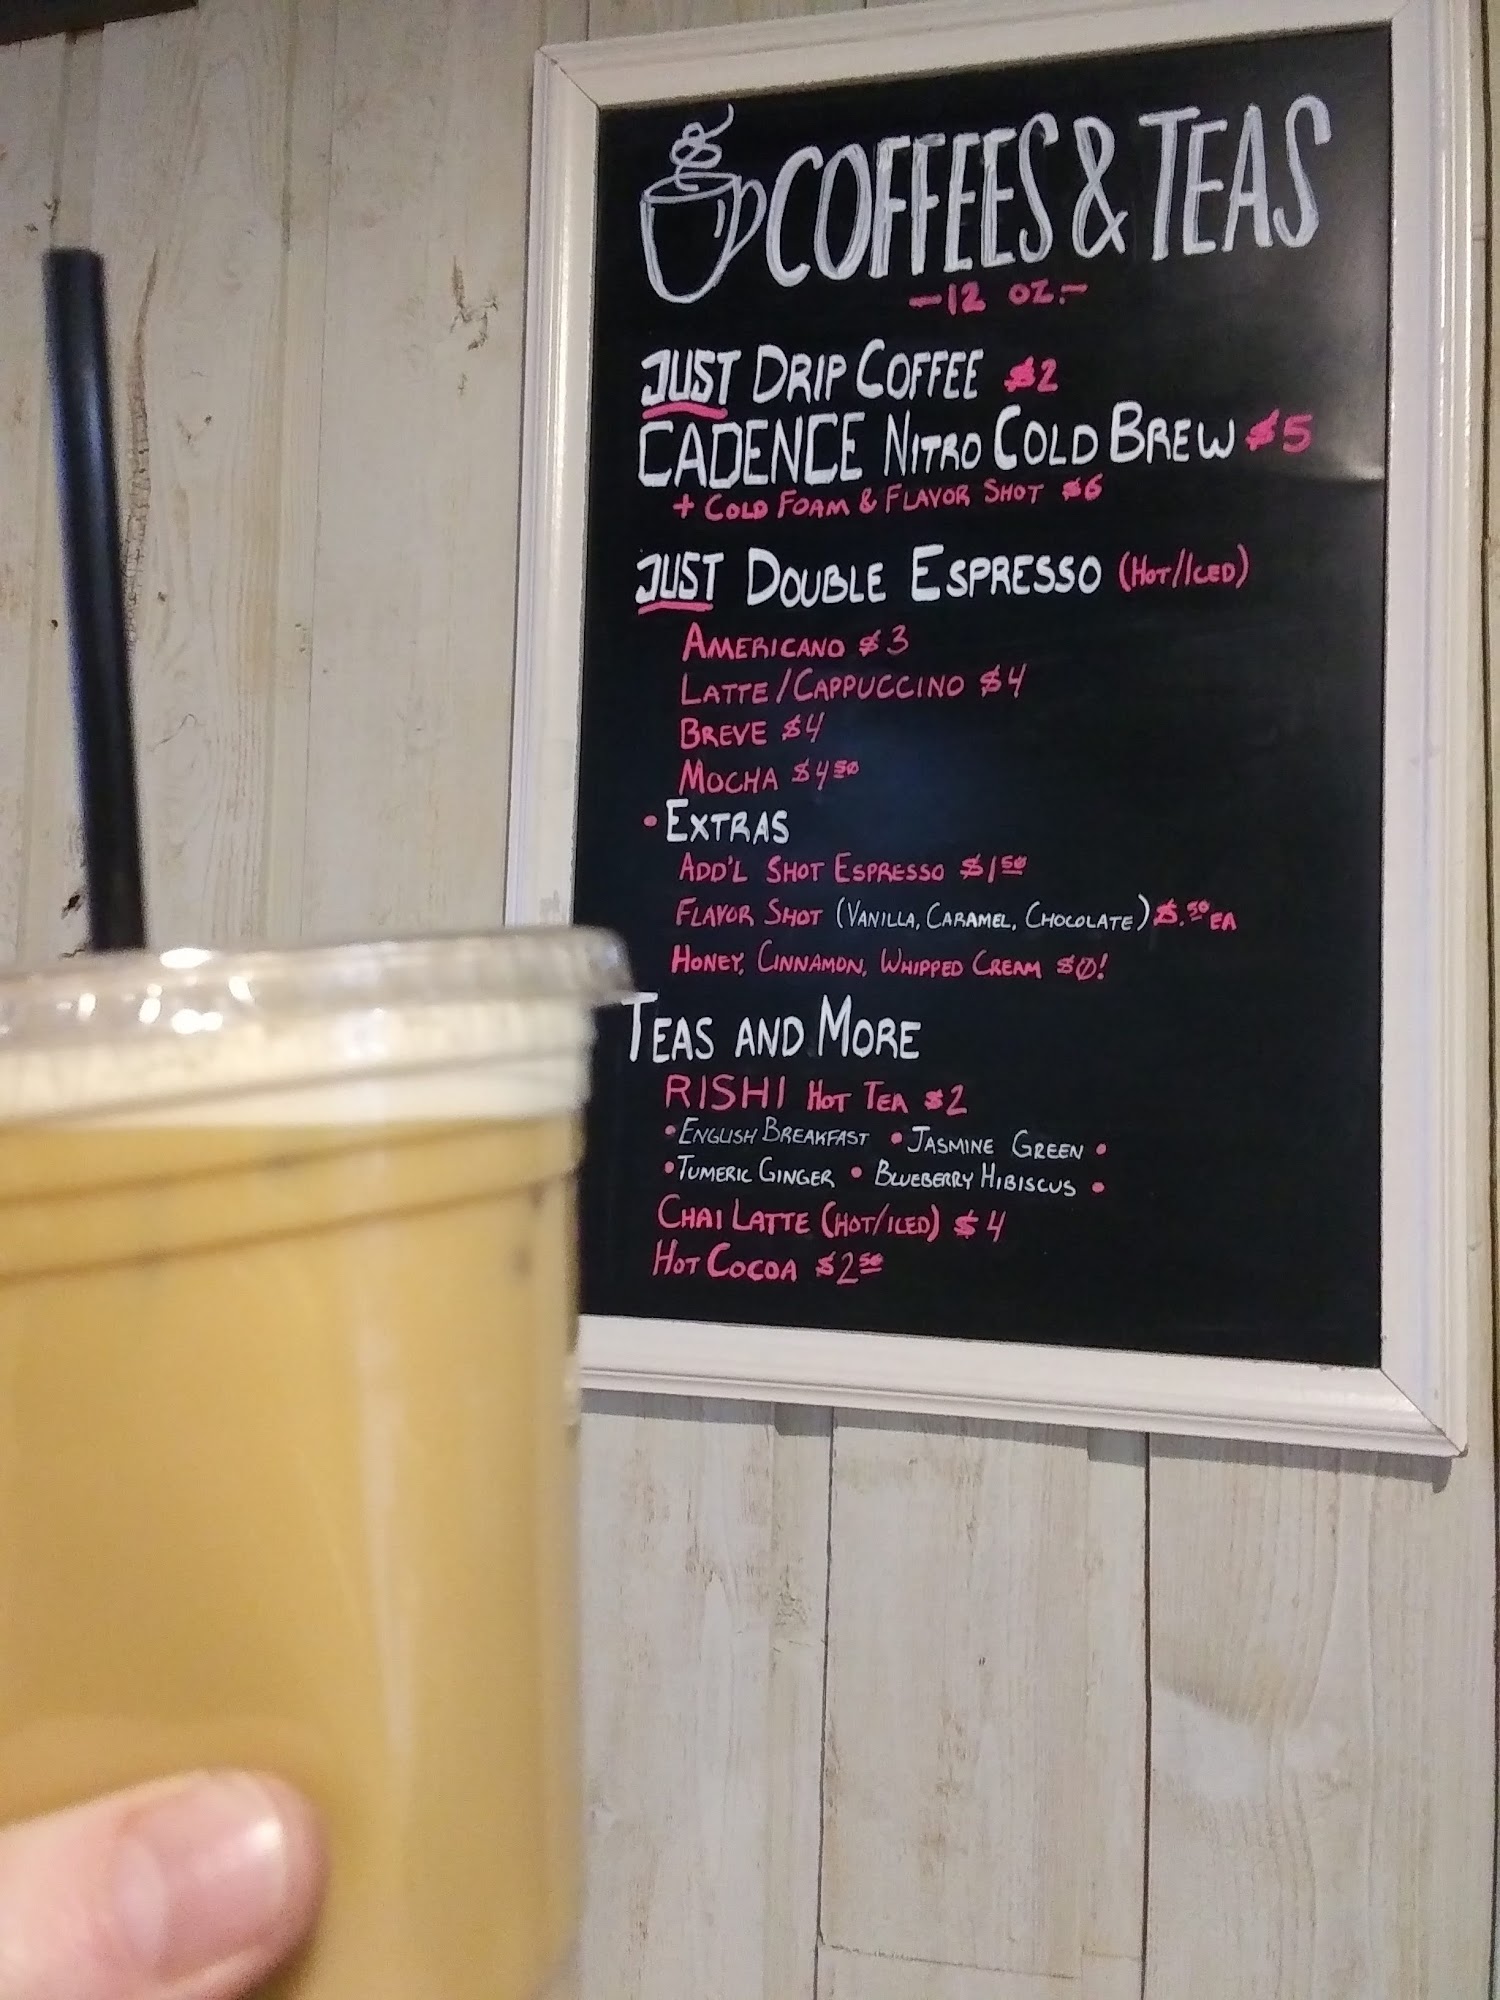 COFFEES & TEAS
-12 OZ.-
JUST DRIP COFFEE $2
CADENCE NITRO COLD BREW $5
+ COLD FOAM & FLAVOR SHOT $6
JUST DOUBLE ESPRESSO (HOT/ICED)
AMERICANO $3
LATTE/CAPPUCCINO $4
BREVE $4
MOCHA $4 50
• EXTRAS
ADD'L SHOT ESPRESSO $1 50
FLAVOR SHOT (VANILLA, CARAMEL, CHOCOLATE) $.50 EA
HONEY, CINNAMON, WHIPPED CREAM $0!
TEAS AND MORE
RISHI HOT TEA $2
• ENGLISH BREAKFAST • JASMINE GREEN •
• TUMERIC GINGER • BLUEBERRY HIBISCUS •
CHAI LATTE (HOT/ICED) $4
HOT COCOA $2 50